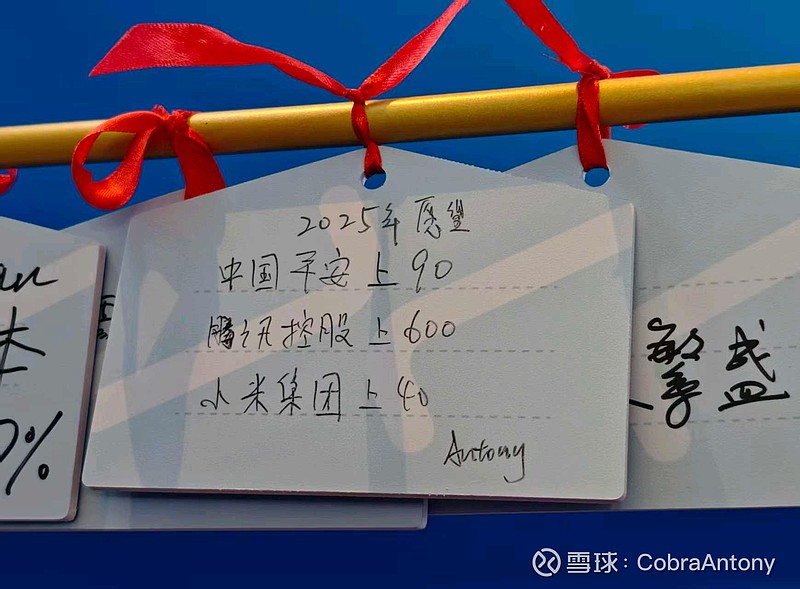 2025年愿望
中国平安上90
腾讯控股上600
小米集团上40
Antony
繁盛
0%
雪球：CobraAntony